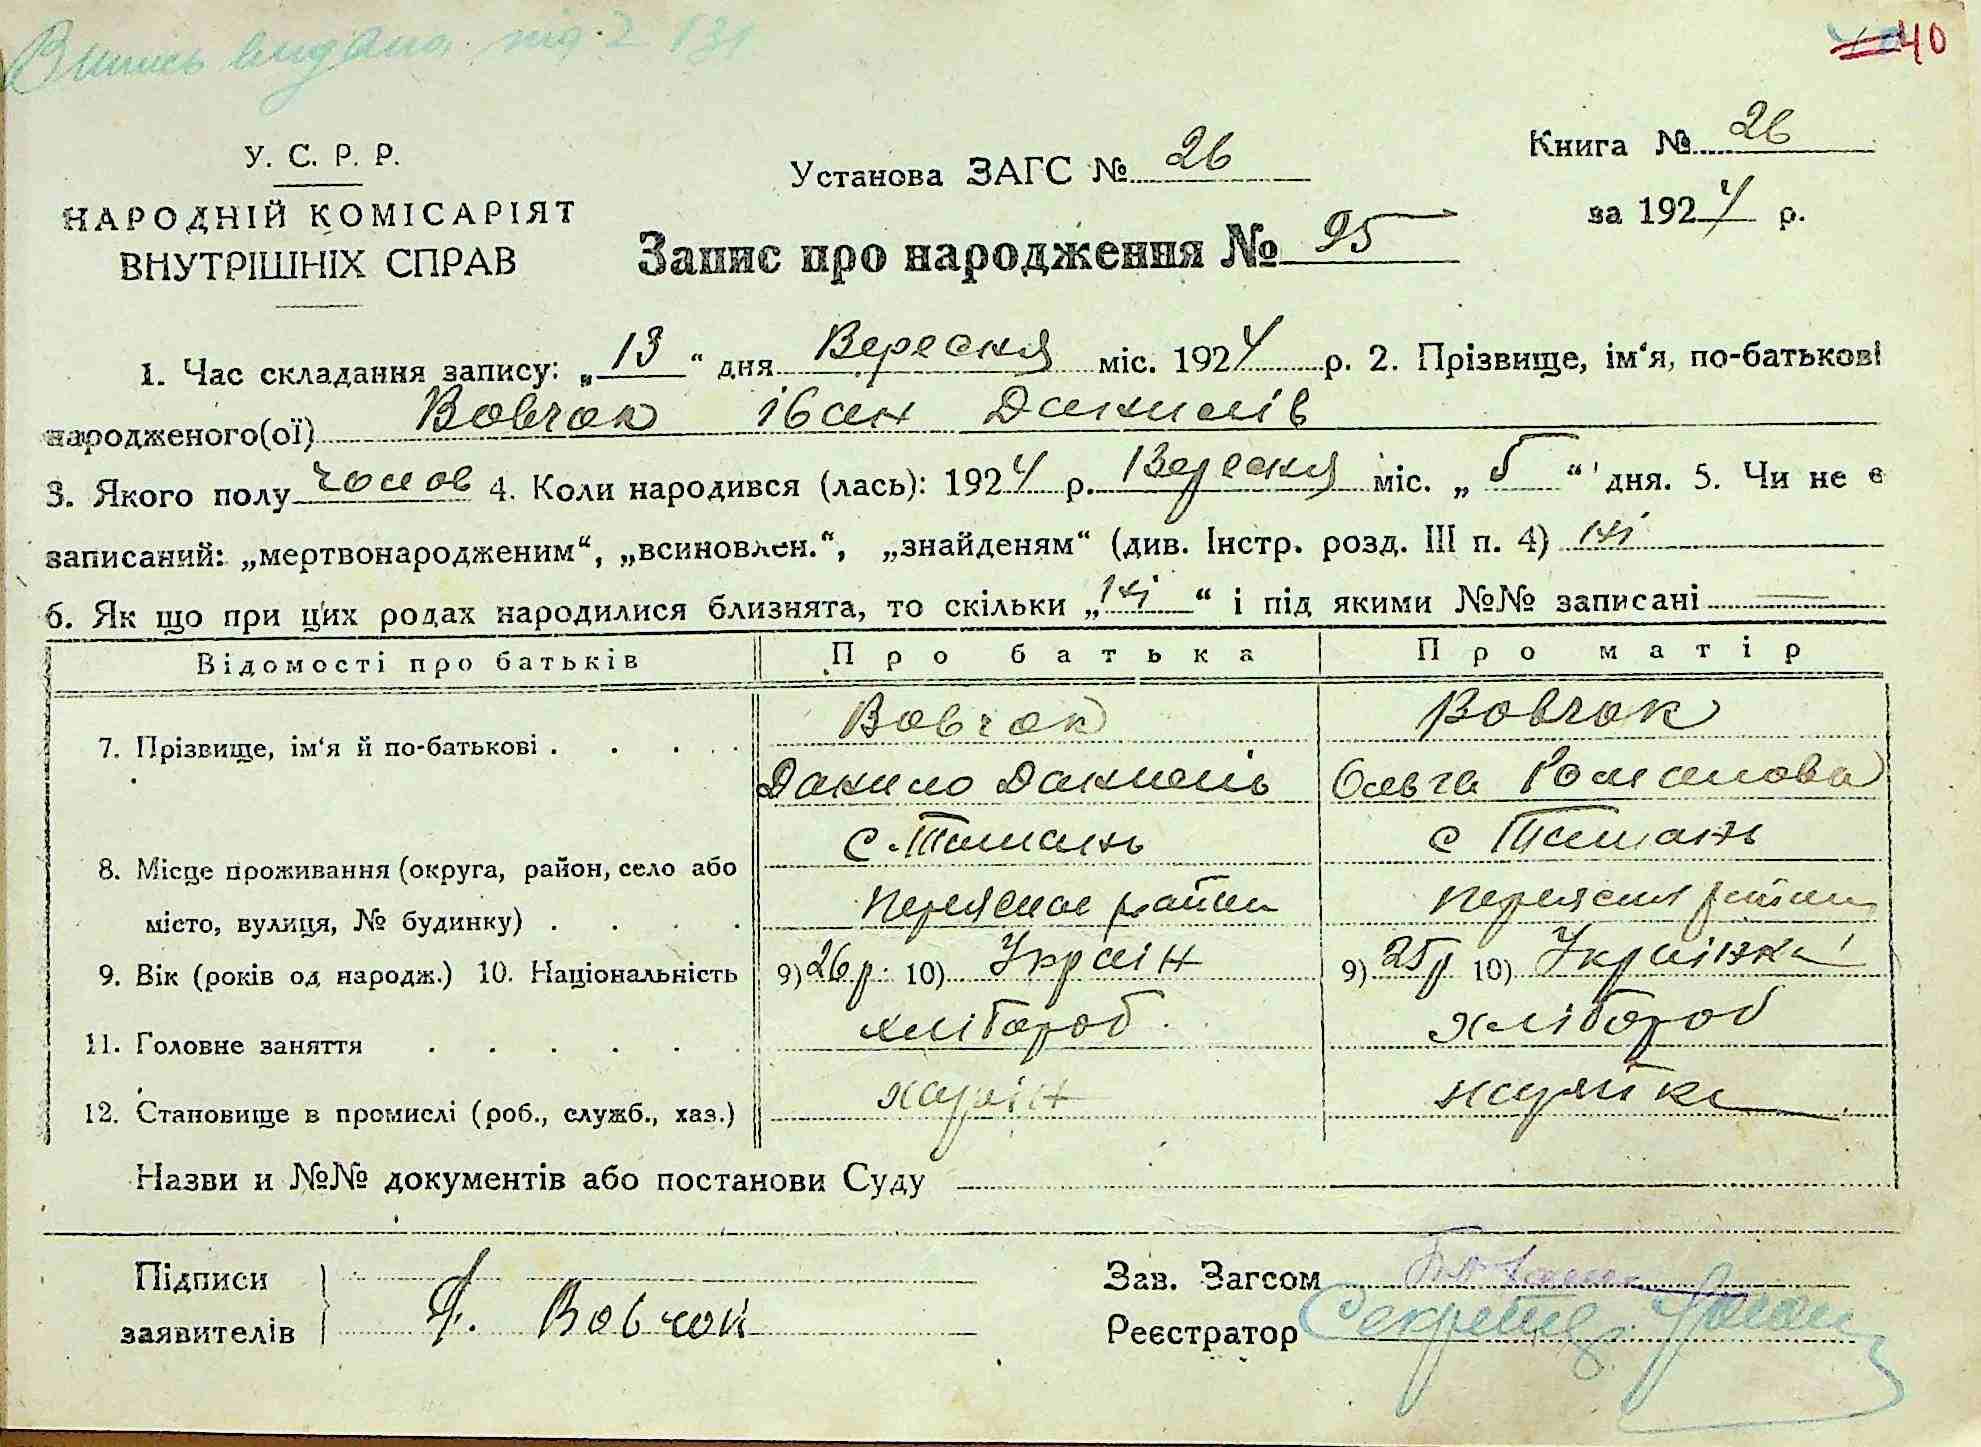 Випись видана під 2 131
40
У. С. Р. Р.
НАРОДНІЙ КОМІСАРІЯТ
ВНУТРІШНІХ СПРАВ
Установа ЗАГС № 26
Книга № 26
за 1924 р.
Запис про народження № 95
1. Час складання запису: „13“ дня Вересня міс. 1924 р. 2. Прізвище, ім'я, по-батькові
народженого(ої) Вовчок іван Данилів
3. Якого полу чолов 4. Коли народився (лась): 1924 р. Вересня міс. „5“ дня. 5. Чи не є
записаний: „мертвонародженим“, „всиновлен.“, „знайденям“ (див. Інстр. розд. III п. 4) ні
6. Як що при цих родах народилися близнята, то скільки „ні“ і під якими №№ записані —
Відомості про батьків Про батька Про матір
7. Прізвище, ім'я й по-батькові . . . . Вовчок Вовчок
Данило Данилів Ольга Романова
с. Ташань с Ташань
8. Місце проживання (округа, район, село або
місто, вулиця, № будинку) . . . . Переяслав район Переясл район
9. Вік (років од народж.) 10. Національність 9) 26 р. 10) Українн 9) 25 р 10) Українка
11. Головне заняття . . . . . . хлібороб хлібороб
12. Становище в промислі (роб., служб., хаз.)
Назви и №№ документів або постанови Суду —
Підписи
заявителів
Д. Вовчок
Зав. Загсом
Реєстратор Секретар